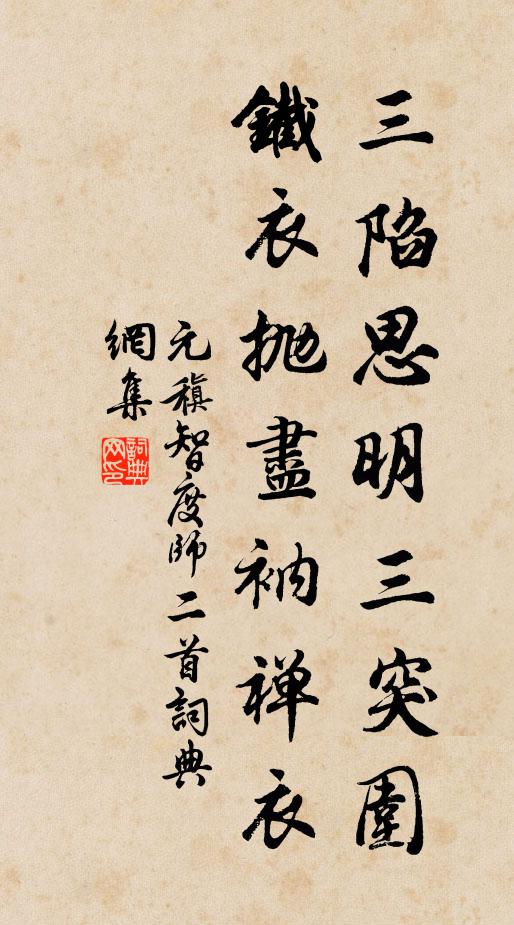 三陷思明三突圍
鐵衣抛盡衲禅衣
元稹智度師二首詞典
網集
詞典
网印